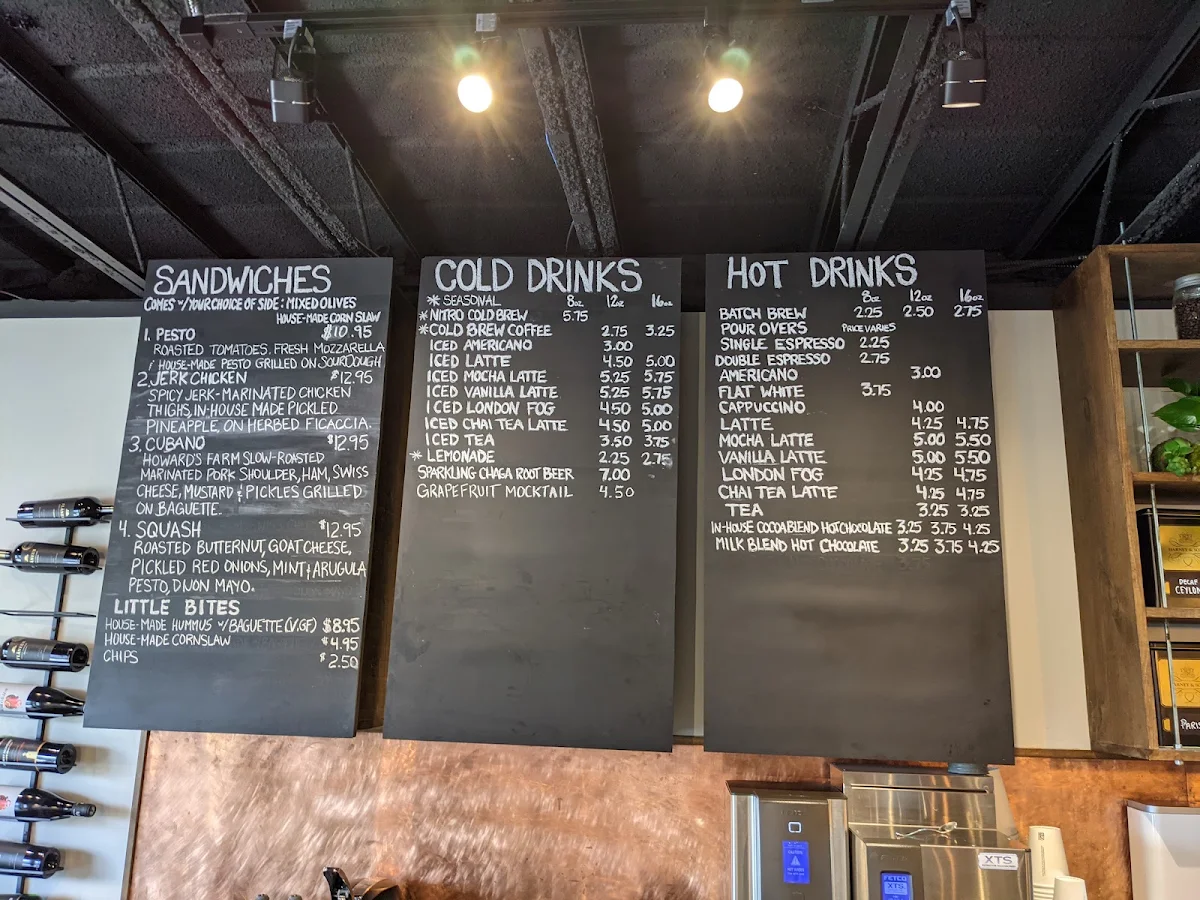 SANDWICHES
COMES W/ YOUR CHOICE OF SIDE: MIXED OLIVES
HOUSE-MADE CORN SLAW
1. PESTO $10.95
ROASTED TOMATOES, FRESH MOZZARELLA
& HOUSE-MADE PESTO GRILLED ON SOURDOUGH
2. JERK CHICKEN $12.95
SPICY JERK-MARINATED CHICKEN
THIGHS, IN-HOUSE MADE PICKLED
PINEAPPLE, ON HERBED FICACCIA.
3. CUBANO $12.95
HOWARD'S FARM SLOW-ROASTED
MARINATED PORK SHOULDER, HAM, SWISS
CHEESE, MUSTARD & PICKLES GRILLED
ON BAGUETTE.
4. SQUASH $12.95
ROASTED BUTTERNUT, GOAT CHEESE,
PICKLED RED ONIONS, MINT & ARUGULA
PESTO, DIJON MAYO.
LITTLE BITES
HOUSE-MADE HUMMUS W/ BAGUETTE (V.GF) $8.95
HOUSE-MADE CORNSLAW $4.95
CHIPS $2.50
COLD DRINKS
* SEASONAL 8oz 12oz 16oz
* NITRO COLD BREW 5.75
* COLD BREW COFFEE 2.75 3.25
ICED AMERICANO 3.00
ICED LATTE 4.50 5.00
ICED MOCHA LATTE 5.25 5.75
ICED VANILLA LATTE 5.25 5.75
ICED LONDON FOG 4.50 5.00
ICED CHAI TEA LATTE 4.50 5.00
ICED TEA 3.50 3.75
* LEMONADE 2.25 2.75
SPARKLING CHAGA ROOT BEER 7.00
GRAPEFRUIT MOCKTAIL 4.50
HOT DRINKS
8oz 12oz 16oz
BATCH BREW 2.25 2.50 2.75
POUR OVERS PRICE VARIES
SINGLE ESPRESSO 2.25
DOUBLE ESPRESSO 2.75
AMERICANO 3.00
FLAT WHITE 3.75
CAPPUCCINO 4.00
LATTE 4.25 4.75
MOCHA LATTE 5.00 5.50
VANILLA LATTE 5.00 5.50
LONDON FOG 4.25 4.75
CHAI TEA LATTE 4.25 4.75
TEA 3.25 3.25
IN-HOUSE COCOA BLEND HOT CHOCOLATE 3.25 3.75 4.25
MILK BLEND HOT CHOCOLATE 3.25 3.75 4.25
DECAF
CEYLON
PARIS
XTS
FETCO
XTS